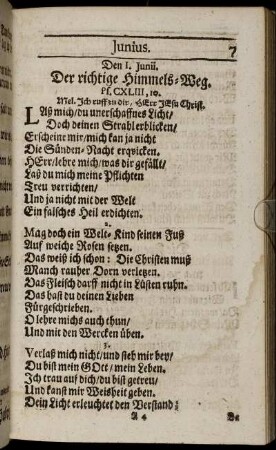 Junius. 7
Den 1. Junii.
Der richtige Himmels-Weg.
Ps. CXLIII, 10.
Mel. Ich ruff zu dir, HErr JEsu Christ.
Laß mich/du unerschaffnes Licht/
Doch deinen Strahl erblicken/
Erscheine mir/mich kan ja nicht
Die Sünden-Nacht erqvicken.
HErr/lehre mich/was dir gefällt/
Laß du mich meine Pflichten
Treu verrichten/
Und ja nicht mit der Welt
Ein falsches Heil erdichten.
2.
Mag doch ein Welt-Kind seinen Fuß
Auf weiche Rosen setzen.
Das weiß ich schon: Die Christen muß
Manch rauher Dorn verletzen.
Das Fleisch darff nicht in Lüsten ruhn.
Das hast du deinen Lieben
Fürgeschrieben.
O lehre michs auch thun/
Und mit den Wercken üben.
3.
Verlaß mich nicht/und steh mir bey/
Du bist mein GOtt/mein Leben.
Ich trau auf dich/du bist getreu/
Und kanst mir Weisheit geben.
Dein Licht erleuchtet den Verstand;
A 4 De